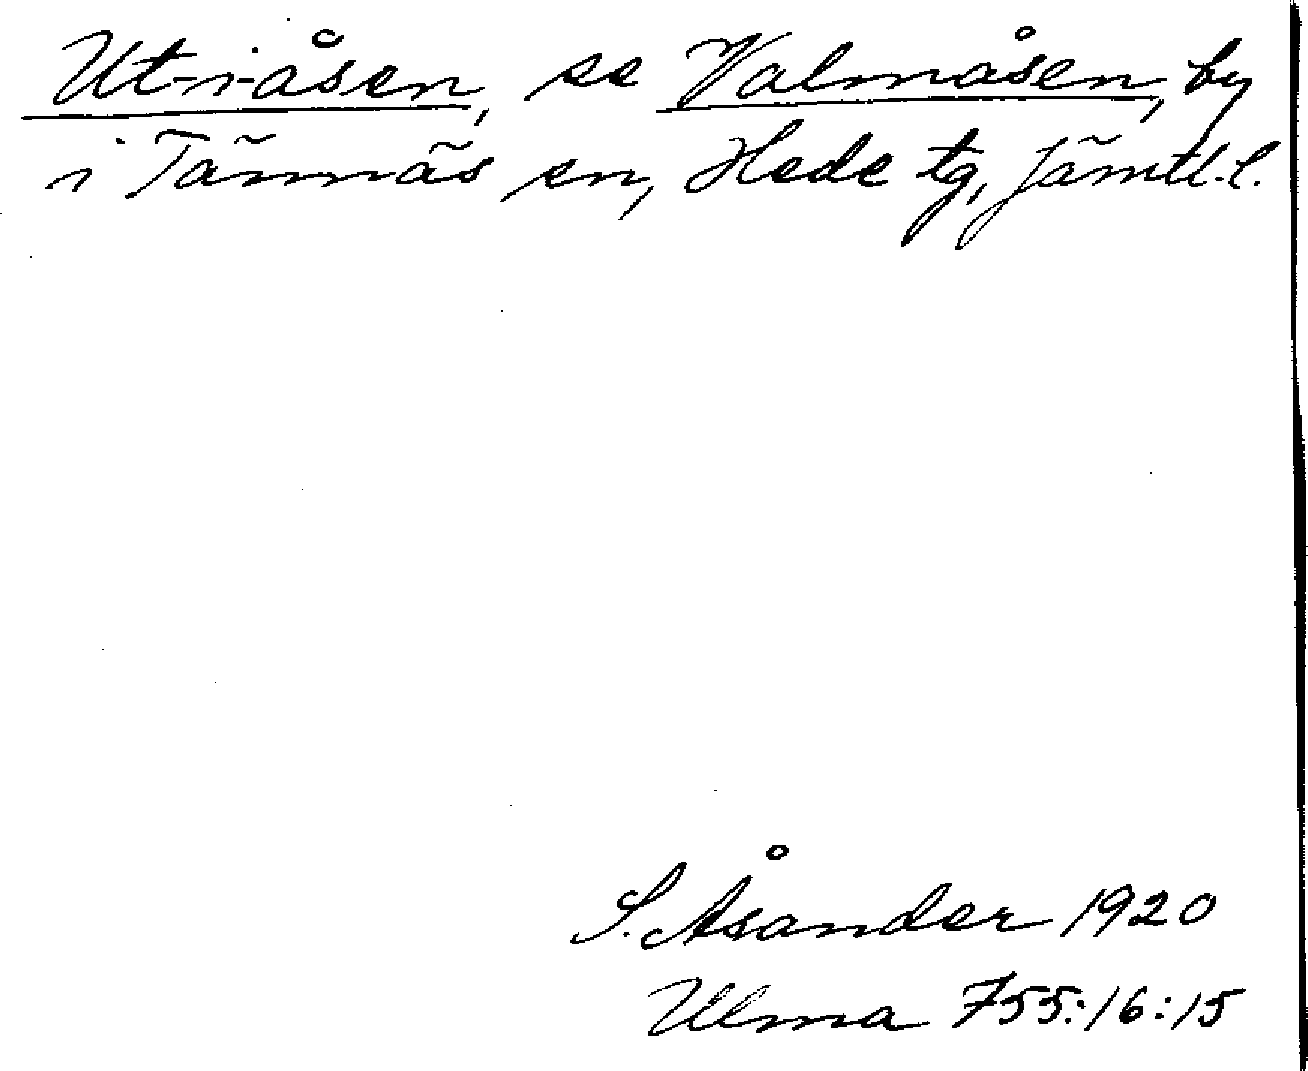 Ut-i-åsen, se Valmåsen, by
i Tännäs sn, Hede tg, Jämtl.l.
S. Åsander 1920
Ulma 755:16:15